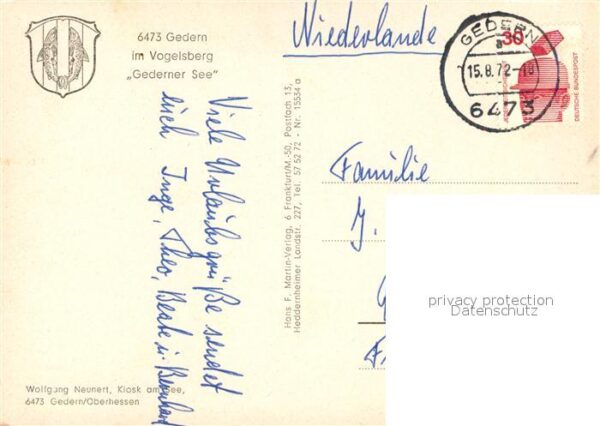 6473 Gedern
im Vogelsberg
„Gederner See"
Viele Urlaubsgrüße sendet
euch Inge, Theo, Beate u. Bernhard
Wolfgang Neunert, Kiosk am See,
6473 Gedern/Oberhessen
Hans F. Martin-Verlag, 6 Frankfurt/M.-50, Postfach 13,
Heddernheimer Landstr. 227, Tel. 57 52 72 - Nr. 15534 a
Niederlande
GEDERN
a
15.8.72-10
6473
30
DEUTSCHE BUNDESPOST
Familie
J.
privacy protection
Datenschutz